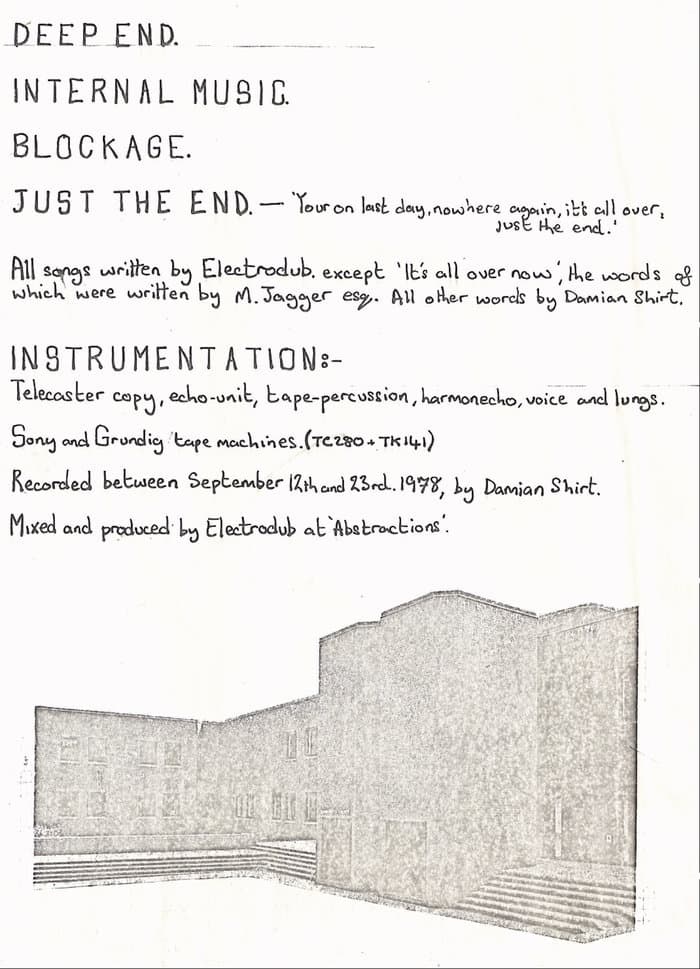 DEEP END.
INTERNAL MUSIC.
BLOCKAGE.
JUST THE END. — 'Your on last day, nowhere again, it's all over,
just the end.'
All songs written by Electrodub. except 'It's all over now', the words of
which were written by M. Jagger esq. All other words by Damian Shirt.
INSTRUMENTATION:-
Telecaster copy, echo-unit, tape-percussion, harmonecho, voice and lungs.
Sony and Grundig tape machines. (TC280 + TK141)
Recorded between September 12th and 23rd. 1978, by Damian Shirt.
Mixed and produced by Electrodub at 'Abstractions'.